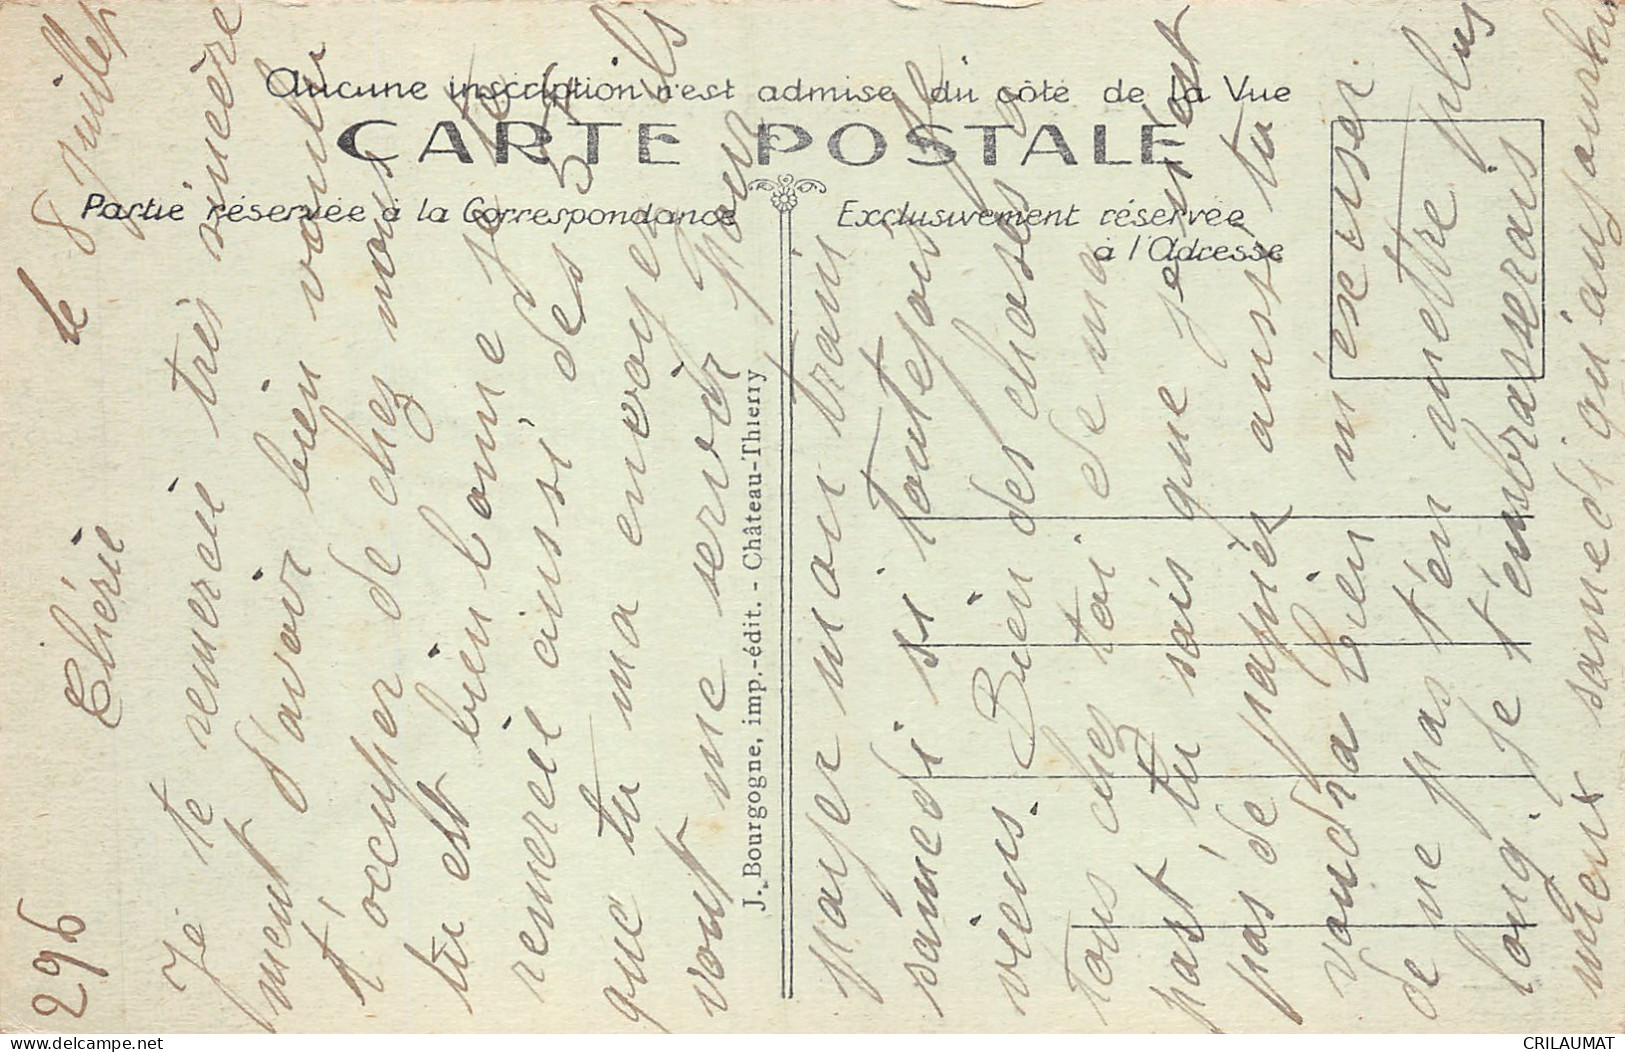 Aucune inscription n'est admise du côté de la Vue
CARTE POSTALE
Partie réservée à la Correspondance
Exclusivement réservée
à l'Adresse
J. Bourgogne, imp.-édit. - Château-Thierry
296 Chérie le 8 Juillet
Je te remercie très sincère
ment d'avoir bien voulu
t'occuper de chez nous
tu est bien bonne je te
remercie aussi des
que tu ma envoyer ils
vont me servir pour
payer mon train
samedi si toutefois je
viens. Bien des choses a
tous chez toi de ma
part, tu sais que je n'est
pas de papier aussi tu
voudra bien m'excuser
de ne pas t'en mettre plus
long. Je t'embrasserais
mieux samedi qu'aujourhui
CRILAUMAT